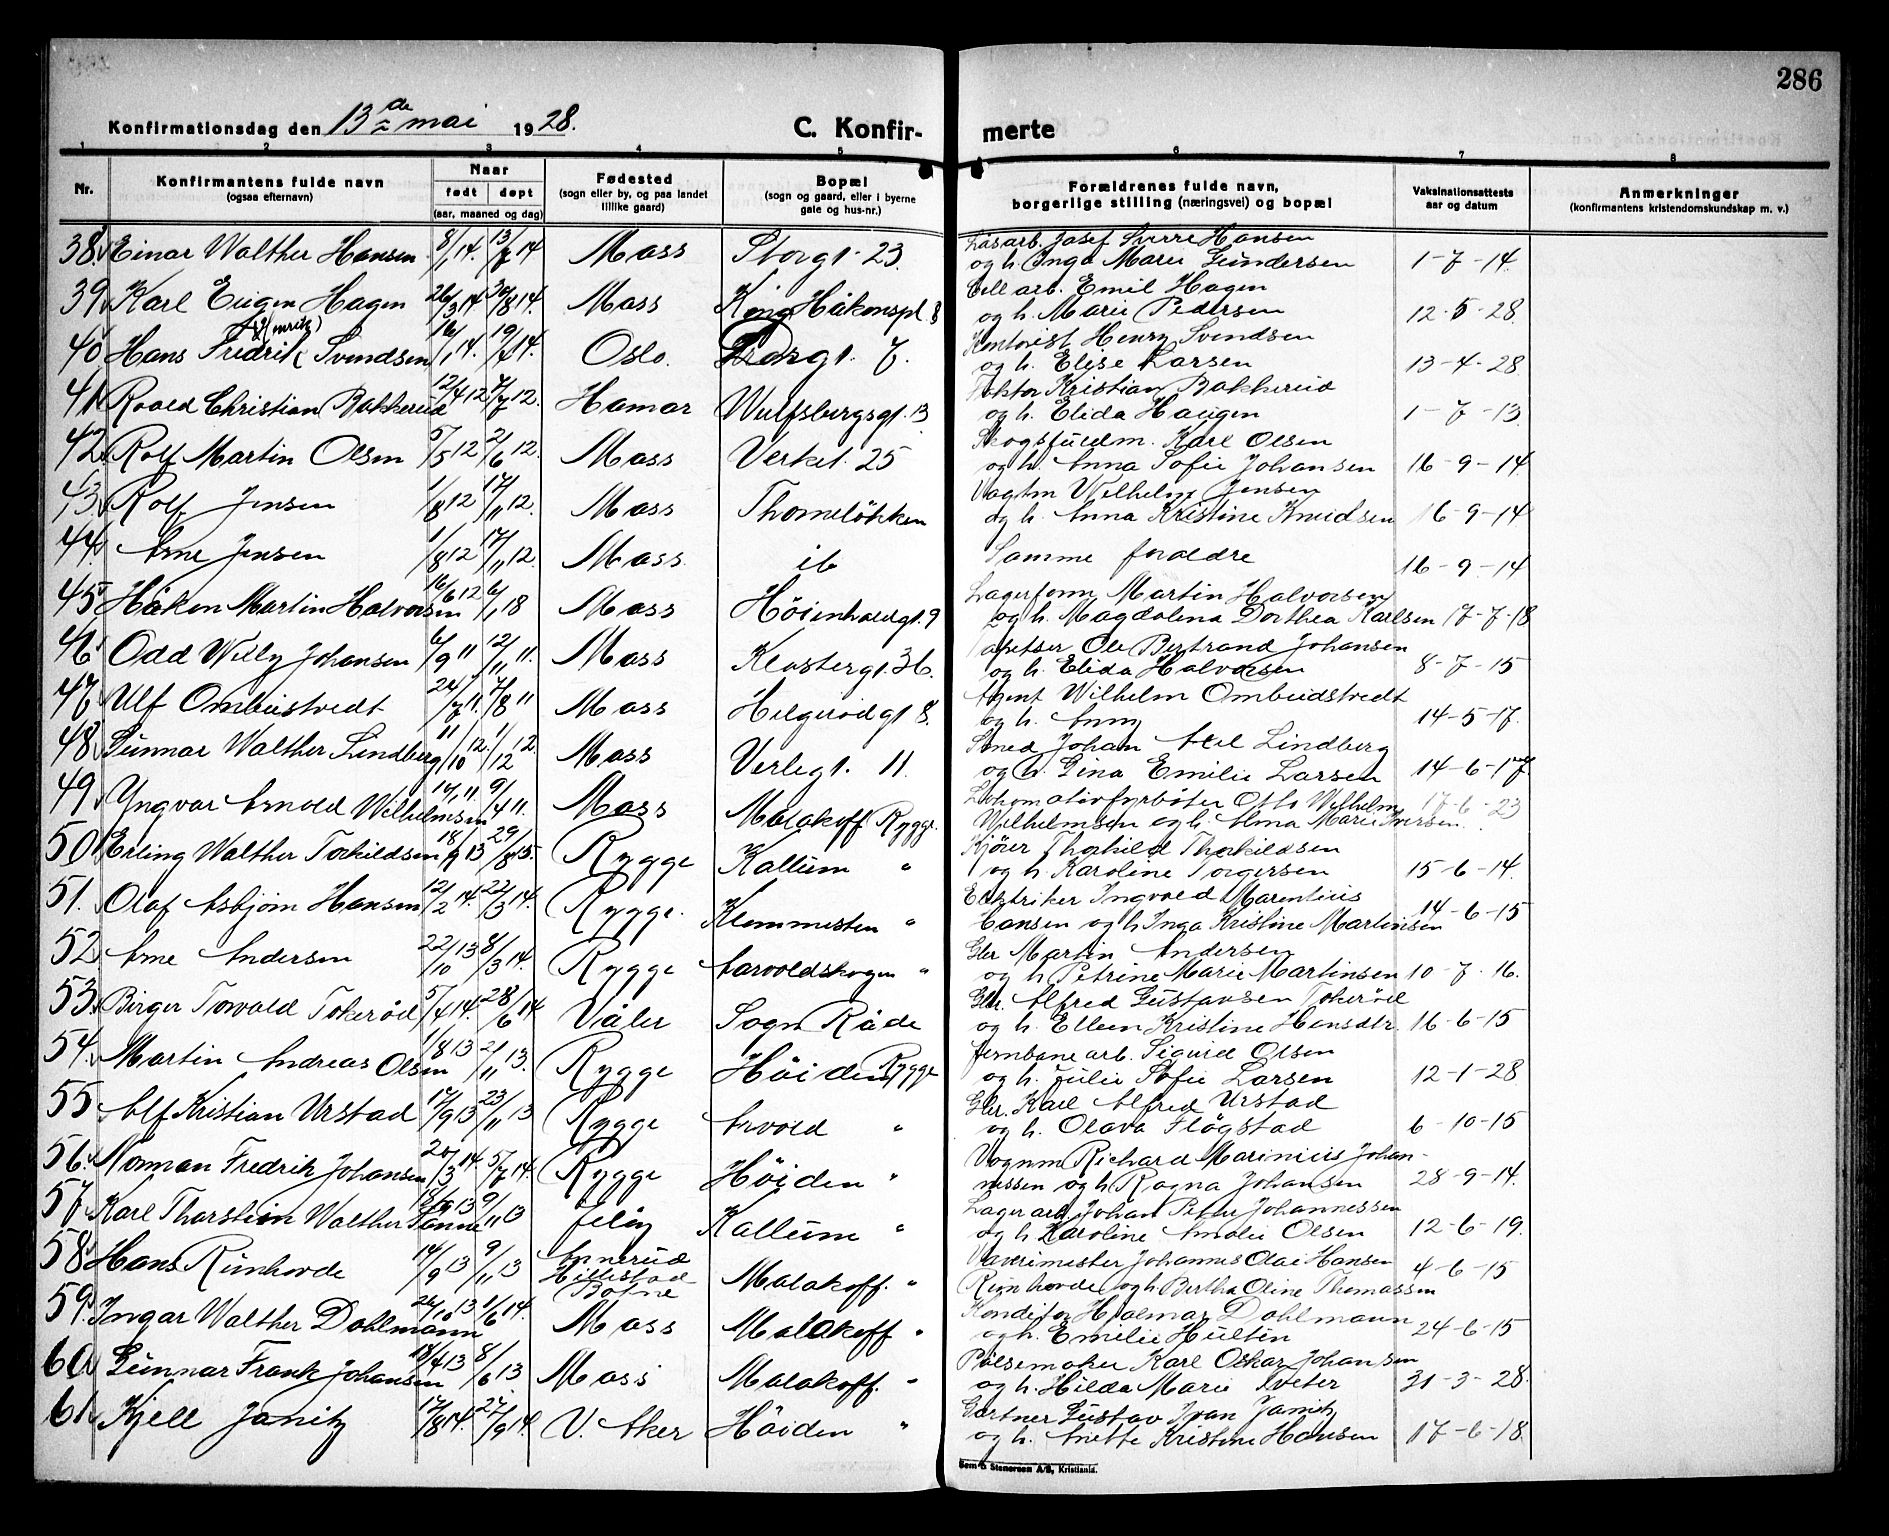 286
Konfirmationsdag den 13de mai 1928.
C. Konfir- merte
1 2 3 4 5 6 7 8
Nr. Konfirmantens fulde navn Naar Fødested Bopæl Forældrenes fulde navn, Vaksinationsattests Anmerkninger
(ogsaa efternavn) født døpt (sogn eller by, og paa landet (sogn og gaard, eller i byerne borgerlige stilling (næringsvei) og bopæl aar og datum (konfirmantens kristendomskundskap m. v.)
(aar, maaned og dag) tillike gaard) gate og hus-nr.)
38. Einar Walther Hansen 8/1 14. 13/7 14 Moss Storgt. 23. Josef Sverre Hansen
og h. Inga Marie Gundersen 1-7-14.
39. Karl Eugen Hagen 26/3 14 30/8 14. Moss Kong Håkonspl. 8 Cell arb. Emil Hagen
og h. Marie Pedersen 12-5-28.
40 Hans Fredrik Svendsen 16/1 14. 19/4 14. Oslo. 7. Kontorist Henry Svendsen
og h. Elise Larsen 13-4-28
41. Roald Christian Bakkerud 12/4 12 7/7 12. Hamar Wulfsbergsgt. 13 Kristian Bakkerud
og h. Elida Haugen 1-7-13.
42. Rolf Martin Olsen 5/5 12 2/6 12. Moss Verket 25 Skogsfuldm. Karl Olsen
og h. Anna Sofie Johansen 16-9-14
43. Rolf Jensen 1/8 12 17/11 12. Moss Thomeløkken Vagtm Wilhelm Jensen
og h. Anna Kristine Knudsen 16-9-14
44. Arne Jensen 1/8 12 17/11 12. Moss ib Samme foreldre 16-9-14
45 Håkon Martin Halvorsen 16/6 12 6/1 18 Moss Høienhaldgt. 9 Lagerform Martin Halvorsen
og h. Magdalena Dorthea Karlsen 17-7-18
46. Odd Willy Johansen 6/9 11 12/11 11. Moss Klostergt. 36. Ole Bertrand Johansen
og h. Elida Halvorsen 8-7-15
47. Ulf Ombustvedt 24/7 11. 7/8 11 Moss Helgerødgt 8. Agent Wilhelm Ombudstvedt
og h. Anny 14-5-17.
48. Gunnar Walther Lindberg 11/10 12. 1/12 12. Moss Verlegt. 11. Smed Johan Axel Lindberg
og h. Gina Emilie Larsen 14-6-17.
49. Yngvar Arnold Wilhelmsen 9/4 11. Moss Malakoff Rygge. Lokomotivfyrbøter Otto Wilhelm 17-6-23
Wilhelmsen og h. Alma Marie Iversen.
50. Erling Walther Torkildsen 18/9 13 29/8 15. Rygge Kallum " Kjører Thorkild Thorkildsen
og h. Karoline Torgersen 15-6-14.
51. Olaf Asbjørn Hansen 12/2 14. 22/3 14. Rygge. Klommesten " Elektriker Ingvald Marentius
Hansen og h. Inga Kristine Martinsen 14-6-15
52. Arne Andersen 22/10 13 8/3 14. Rygge Aarvoldskogen " Gbr Martin Andersen
og h. Petrine Marie Martinsen 10-7-16.
53. Birger Torvald Tokerød 5/4 14. 28/6 14 Våler Sogn Råde Gbr. Alfred Gustavsen Tokerød
og h. Elleen Kristine Hansdtr. 16-6-15
54. Martin Andreas Olsen 1/8 13 2/11 13. Rygge Høiden Rygge Jernbane arb. Sigurd Olsen
og h. Julie Sofie Larsen 12-1-28
55 Alf Kristian Urstad 17/9 13 23/11 13 Rygge Arvold " Gbr. Karl Alfred Urstad
og h. Olava Fløgstad 6-10-15
56. Norman Fredrik Johansen 20/3 14. 5/7 14. Rygge Høiden " Vognm Richard Marinius Johan-
nessen og h Ragna Johansen 28-9-14.
57. Karl Thorstein Walther 9/11 13 Jeløy Kallum " Lager arb. Johan Peter Johannessen
og h Karoline Amalie Olsen 12-6-19.
58. Hans Rimhovde 14/9 13 9/11 13 Annerud Hillestad Botne Malakoff. " Johannes Olai Hansen
Rimhovde og h Bertha Oline Thomassen 4-6-15
59. Ingar Walther Dahlmann 26/10 13 1/6 14. Moss Malakoff " Konditor Hjalmar Dahlmann
og h. Emilie Hultin 24-6-15
60. Gunnar Frank Johansen 18/4 13 8/6 13 Moss Malakoff. " Pølsemaker Karl Oskar Johansen
og h. Hilda Marie Sveter 31-3-28.
61. Kjell Janitz 17/8 14. 27/9 14. V. Aker Høiden " Gartner Gustav Ivan Janitz
og h. Anette Kristine Hansen 17-6-18.
Sem & Stenersen A/S, Kristiania.